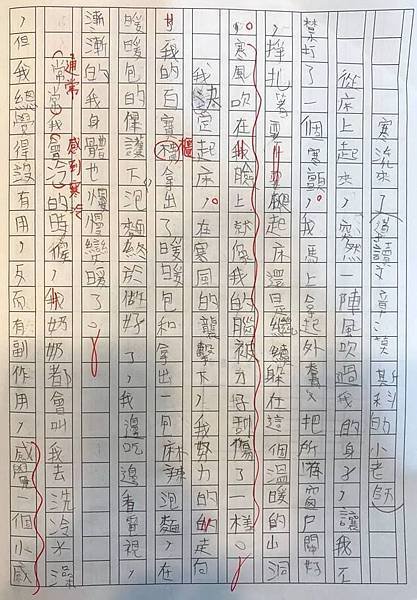 寒流來了(導讀文章:莫斯科的小老師)
從床上起來,突然一陣風吹過我的身子,讓我不
禁打了一個寒顫,我馬上拿起外套,把所有窗戶關好
,掙扎著要起床還是繼續躲在這個溫暖的山洞
寒風吹在我臉上就像我的腦被刀子刮傷了一樣。
我決定起床,在寒風的襲擊下,我努力的的走向
我的百寶櫃拿出了暖暖包和拿出一包麻辣泡麵,在
暖暖包的保護下泡麵終於做好了,我邊吃邊看電視,
漸漸的我身體也慢慢變暖了。
通常 感到寒冷
常常我會冷的時候,我奶奶都會叫我去洗冷水澡
,但我總覺得沒有用,反而有副作用,感冒一個小感